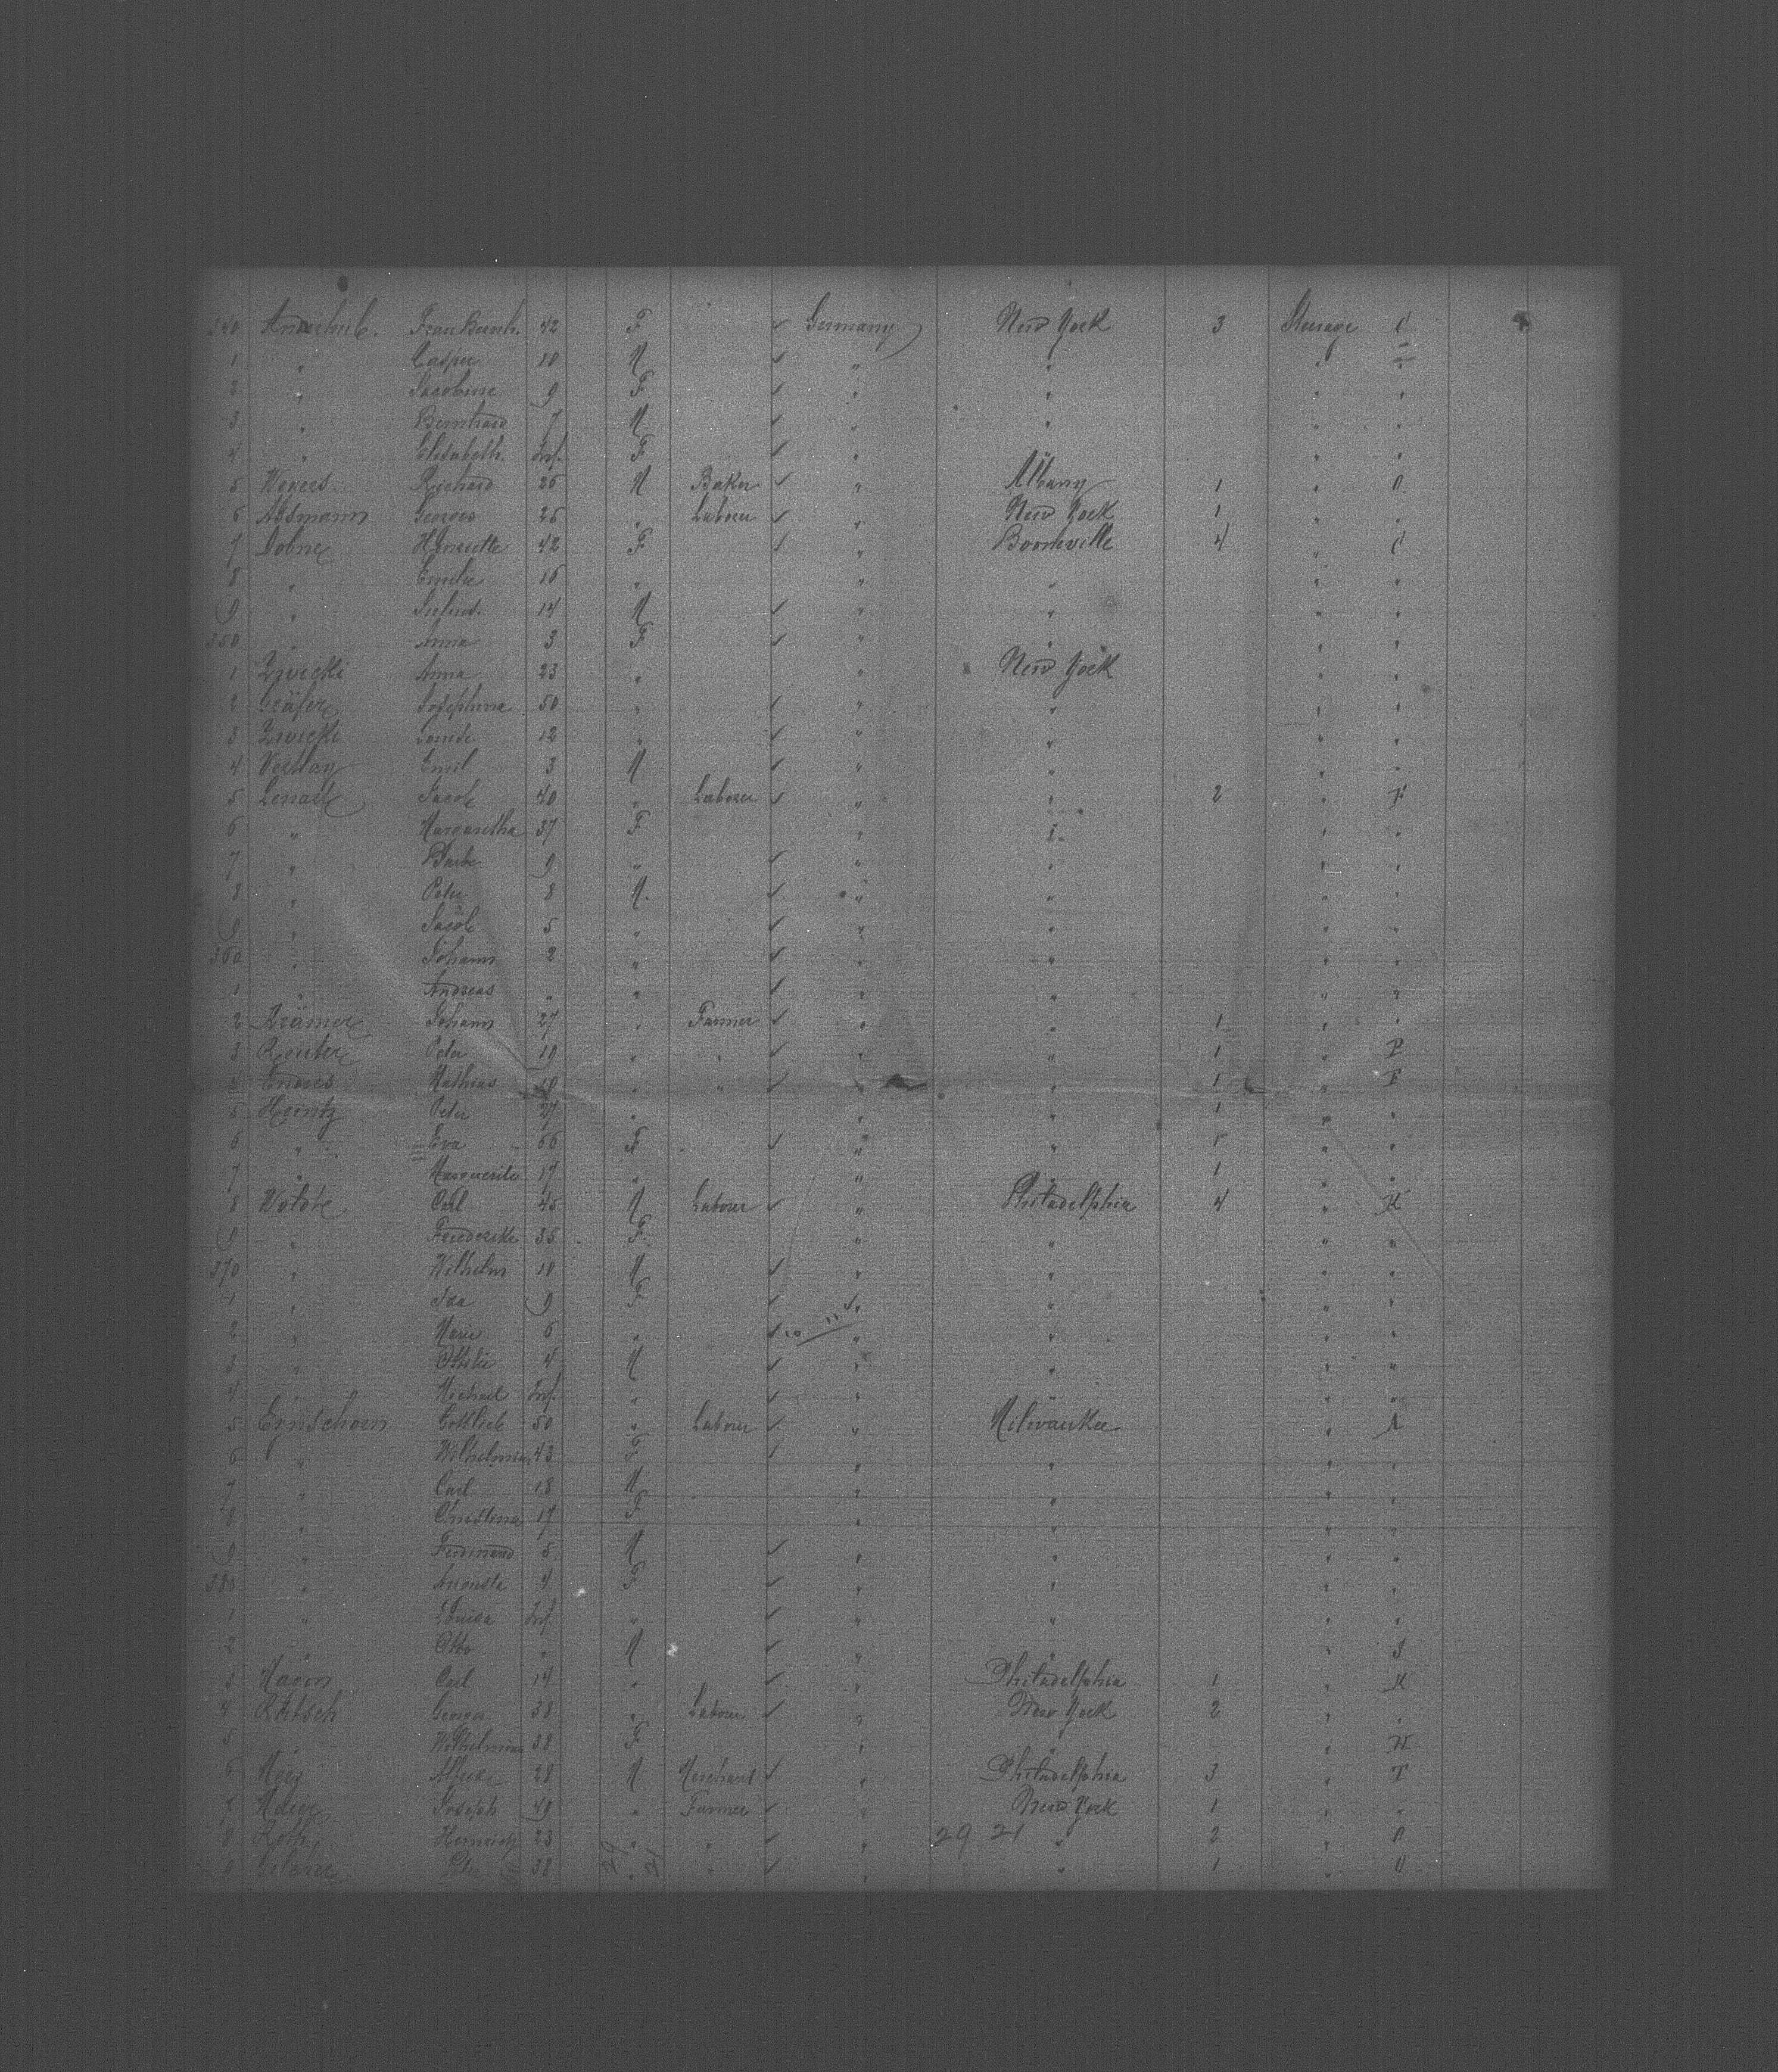 340 Anderhub. Frau Bernh. 42 F ✓ Germany New York 3 Steerage C
1 " Casper 10 M ✓ " " " "
2 " Jacobine 9 F ✓ " " " "
3 " Bernhard 7 M ✓ " " " "
4 " Elisabeth. Inf. F ✓ " " " "
5 Wevers Richard 26 M Baker ✓ " Albany 1 "
6 Assmann Georges 25 " Laborer ✓ " New York 1 " "
7 Dobne Henriette 42 F ✓ " Booneville 4 " C
8 " Emilie 16 " " " " "
9 " Julius 14 M ✓ " " " "
350 " Anna 3 F ✓ " " " "
1 Zwicki Anna 23 " " New York " "
2 Gräfer Josephina 50 " ✓ " " " "
3 Zwicki Louise 12 " ✓ " " " "
4 Emil 3 M ✓ " " " "
5 Lenart Jacob 40 " Laborer ✓ " " 2 " F
6 " Margaretha 37 F " " " "
7 " Barbe 9 " ✓ " " " "
8 " Peter 8 M. ✓ " " " "
9 " Jacob 5 " ✓ " " " "
360 " Johann 2 " ✓ " " " "
1 " Andreas " " ✓ " " " "
2 Krämer Johann 27 " Farmer ✓ " " 1 " "
3 Reuter Peter 19 " " ✓ " " 1 " P
4 Endres Mathias 18 " " ✓ " " 1 " F
5 Heintz Peter 27 " " " 1 " "
6 " Eva 66 F ✓ " " 1 " "
7 " Marguerite 17 " " " 1 " "
8 Carl 45 M Laborer ✓ " Philadelphia 4 " K
9 " Friederike 35 F " " " "
370 " Wilhelm 10 M ✓ " " " "
1 " Ida 9 F ✓ " " " "
2 " Marie 6 " ✓ " " " "
3 " Ottilie 4 M ✓ " " " "
4 " Michael Inf. " ✓ " " " "
5 Gottlieb 50 " Laborer ✓ " Milwaukee "
6 " Wilhelmina 43 F ✓ " " " "
7 " Carl 18 M " " " "
8 " Christina 17 F " " " "
9 " Ferdinand 5 M ✓ " " " "
380 " Auguste 4 F ✓ " " " "
1 " Louisa Inf. " ✓ " " " "
2 " Otto " M ✓ " " " S
3 Carl 14 " ✓ " Philadelphia 1 " K
4 Georges 38 " Laborer ✓ " New York 2 " "
5 Wilhelmina 32 F " " " H
6 28 M Merchant ✓ " Philadelphia 3 " T
7 Joseph 49 " Farmer ✓ " New York 1 " "
8 Roth Heinrich 23 " " ✓ " 29 21 " 2 "
9 Peter 38 29 " 21 " ✓ " " 1 "